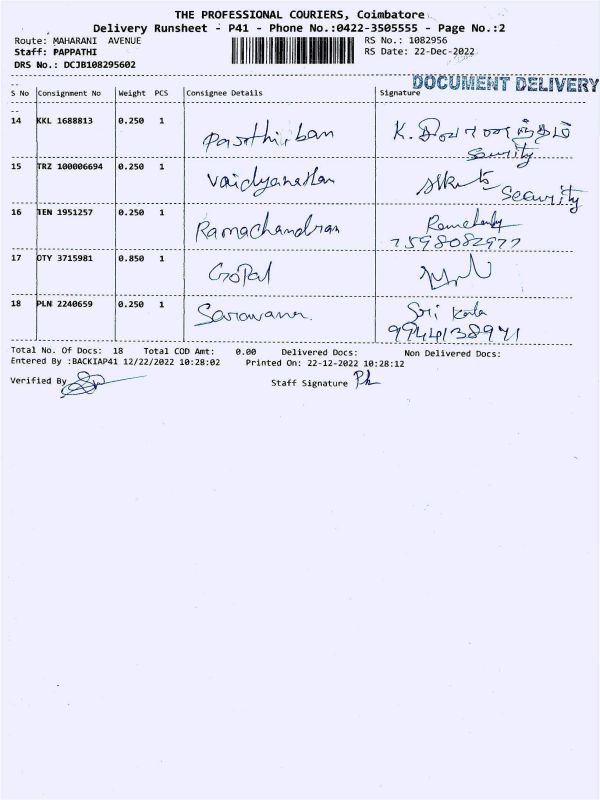 THE PROFESSIONAL COURIERS, Coimbatore
Delivery Runsheet - P41 - Phone No.:0422-3505555 - Page No.:2
Route: MAHARANI AVENUE RS No.: 1082956
Staff: PAPPATHI RS Date: 22-Dec-2022
DRS No.: DCJB108295602
DOCUMENT DELIVERY
S No Consignment No Weight PCS Consignee Details Signature
14 KKL 1688813 0.250 1 Parthiban K.
Security
15 TRZ 100006694 0.250 1 Vaidyanathan Security
16 TEN 1951257 0.250 1 Ramachandran
7598082977
17 OTY 3715981 0.850 1 Gopal
18 PLN 2240659 0.250 1 Saravanan Sri Kala
9944138971
Total No. Of Docs: 18 Total COD Amt: 0.00 Delivered Docs: Non Delivered Docs:
Entered By :BACKIAP41 12/22/2022 10:28:02 Printed On: 22-12-2022 10:28:12
Verified By Staff Signature